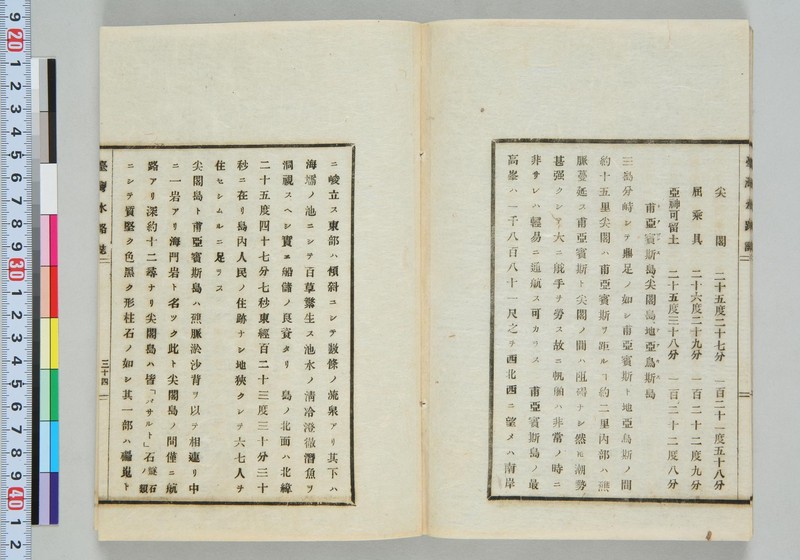 尖閣　二十五度二十七分　一百二十一度五十八分
屈乘具　二十六度二十九分　一百二十二度九分
亞神可留土　二十五度三十八分　一百二十二度八分
甫亞賓斯島尖閣島地亞烏斯島
三島分峙シテ鼎足ノ如シ甫亞賓斯ト地亞烏斯ノ間
約十五里尖閣ハ甫亞賓斯ヲ距ルヿ約二里内部ハ礁
脈蔓延ス甫亞賓斯ト尖閣ノ間ハ阻礙ナシ然𪜈潮勢
甚強クシテ大ニ舵手ヲ勞ス故ニ帆舶ハ非常ノ時ニ
非サレハ輕易ニ通航ス可カラス　甫亞賓斯島ノ最
高峯ハ一千八百八十一尺之ヲ西北西ニ望メハ南岸
ニ崚立ス東部ハ傾斜ニシテ數條ノ流泉アリ其下ハ
海壖ノ池ニシテ百草繁生ス池水ノ清冷澄徹潛魚ヲ
洞視スヘシ實ニ船舶ノ良資タリ　島ノ北面ハ北緯
二十五度四十七分七秒東經百二十三度三十分三十
秒ニ在リ島内人民ノ住跡ナシ地狹クシテ六七人ヲ
住セシムルニ足ラス
尖閣島ト甫亞賓斯島ハ礁脈淤沙背ヲ以テ相連リ中
ニ一岩アリ海門岩ト名ツク此ト尖閣島ノ間僅ニ航
路アリ深約十二尋ナリ尖閣島ハ皆「バサルト」石燧石ノ類
ニシテ質堅ク色黑ク形柱石ノ如シ其一部ハ礧嵬ト
臺灣水路誌
三十四